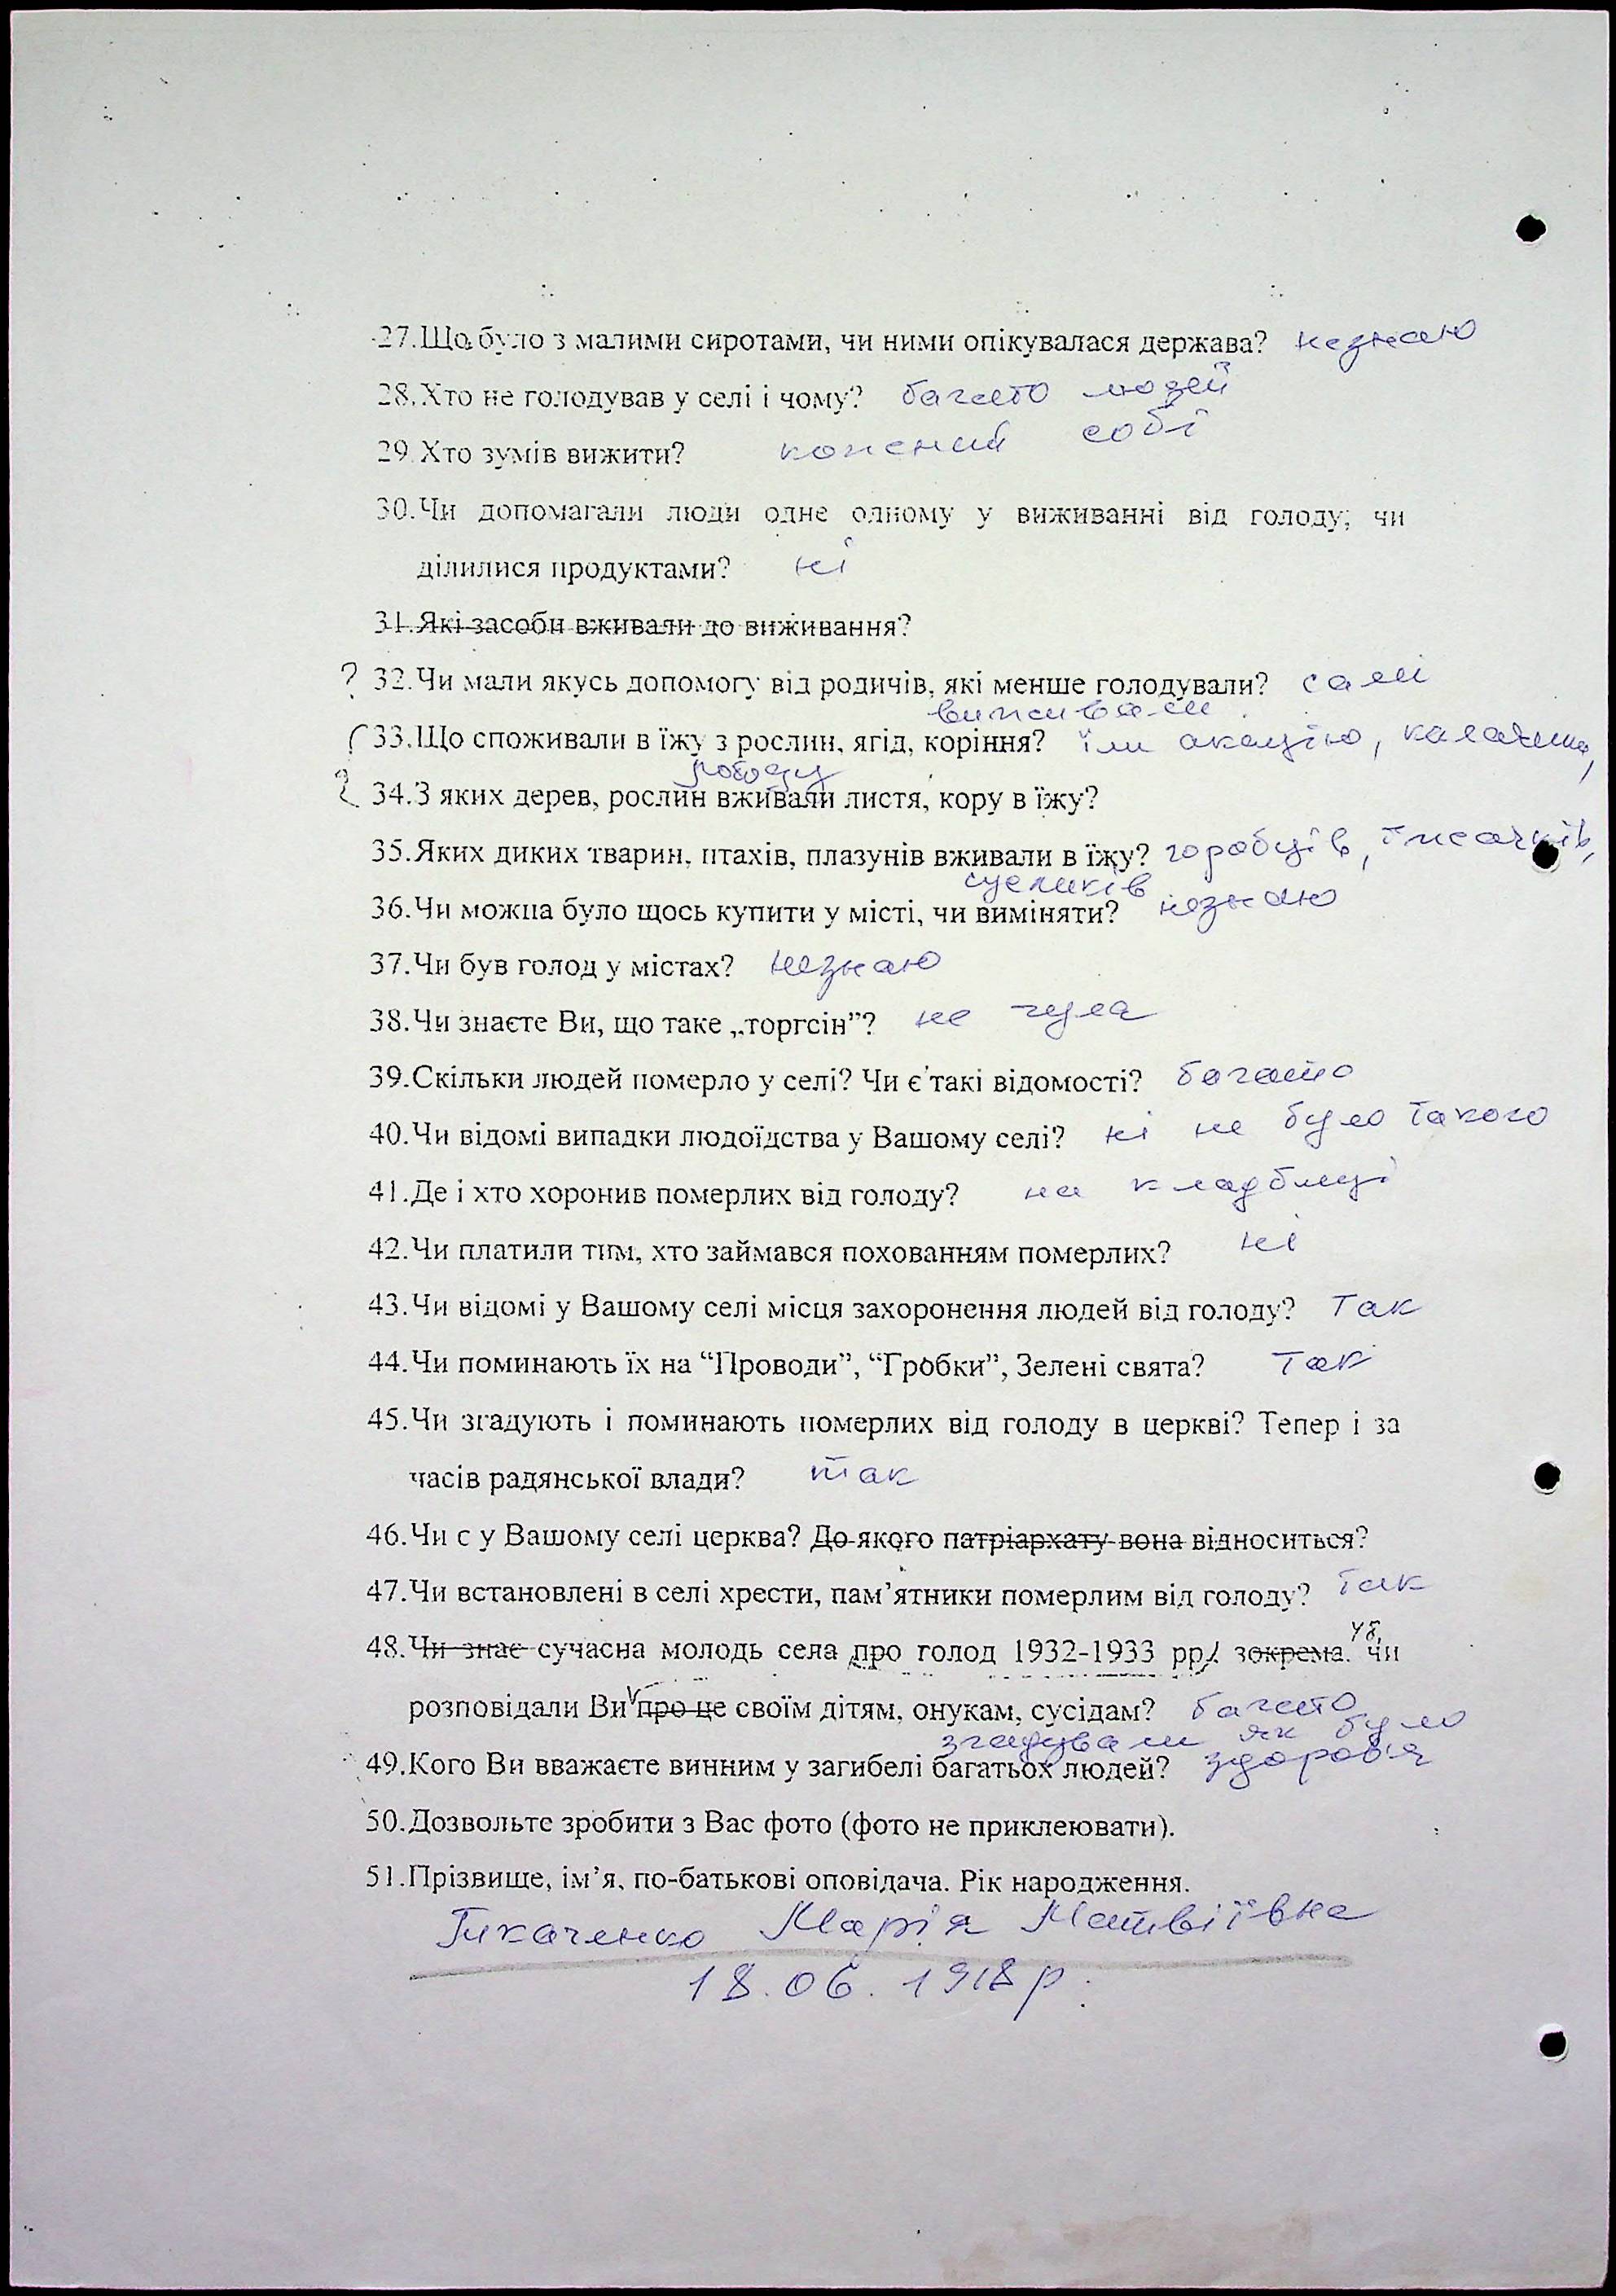 27.Що було з малими сиротами, чи ними опікувалася держава? незнаю
28.Хто не голодував у селі і чому? багато людей
29.Хто зумів вижити? кожений собі
30.Чи допомагали люди одне одному у виживанні від голоду; чи
ділилися продуктами? ні
31.Які засоби вживали до виживання?
? 32.Чи мали якусь допомогу від родичів, які менше голодували? самі
виживали
33.Що споживали в їжу з рослин, ягід, коріння? їли акацію, калачики,
лободу
34.З яких дерев, рослин вживали листя, кору в їжу?
35.Яких диких тварин, птахів, плазунів вживали в їжу? горобців,
сусликів
36.Чи можна було щось купити у місті, чи виміняти? незнаю
37.Чи був голод у містах? незнаю
38.Чи знаєте Ви, що таке „торгсін”? не чула
39.Скільки людей померло у селі? Чи є такі відомості? багато
40.Чи відомі випадки людоїдства у Вашому селі? ні не було такого
41.Де і хто хоронив померлих від голоду? на кладбищі
42.Чи платили тим, хто займався похованням померлих? ні
43.Чи відомі у Вашому селі місця захоронення людей від голоду? Так
44.Чи поминають їх на “Проводи”, “Гробки”, Зелені свята? Так
45.Чи згадують і поминають померлих від голоду в церкві? Тепер і за
часів радянської влади? так
46.Чи є у Вашому селі церква? До якого патріархату вона відноситься?
47.Чи встановлені в селі хрести, пам’ятники померлим від голоду? так
48.Чи знає сучасна молодь села про голод 1932-1933 рр. зокрема. чи
розповідали Ви про це своїм дітям, онукам, сусідам? багато
згадували як було
49.Кого Ви вважаєте винним у загибелі багатьох людей? здоров'я
50.Дозвольте зробити з Вас фото (фото не приклеювати).
51.Прізвище, ім’я, по-батькові оповідача. Рік народження.
Ткаченко Марія Матвіївна
18.06.1918 р.